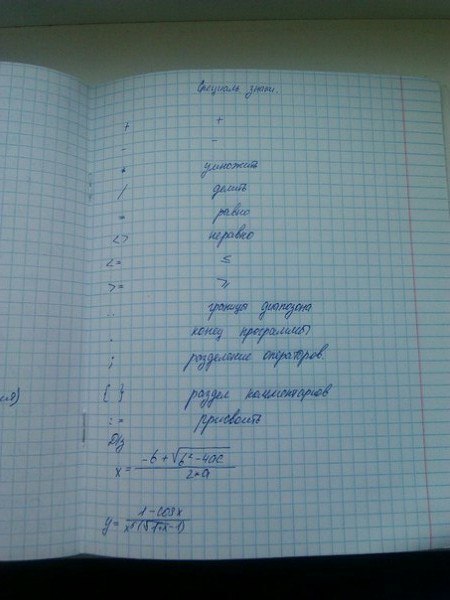 Специаль знаки.
+ +
- -
* умножить
/ делить
= равно
<> неравно
<= ≤
>= ≥
.. граница диапозона
. конец программы
; разделение операторов.
{ } раздел комментариов
:= присвоить
D/з
x = (-b + √(b² - 4ac)) / (2*a)
y = (1 - cos x) / (x⁶(√(1+x) - 1))